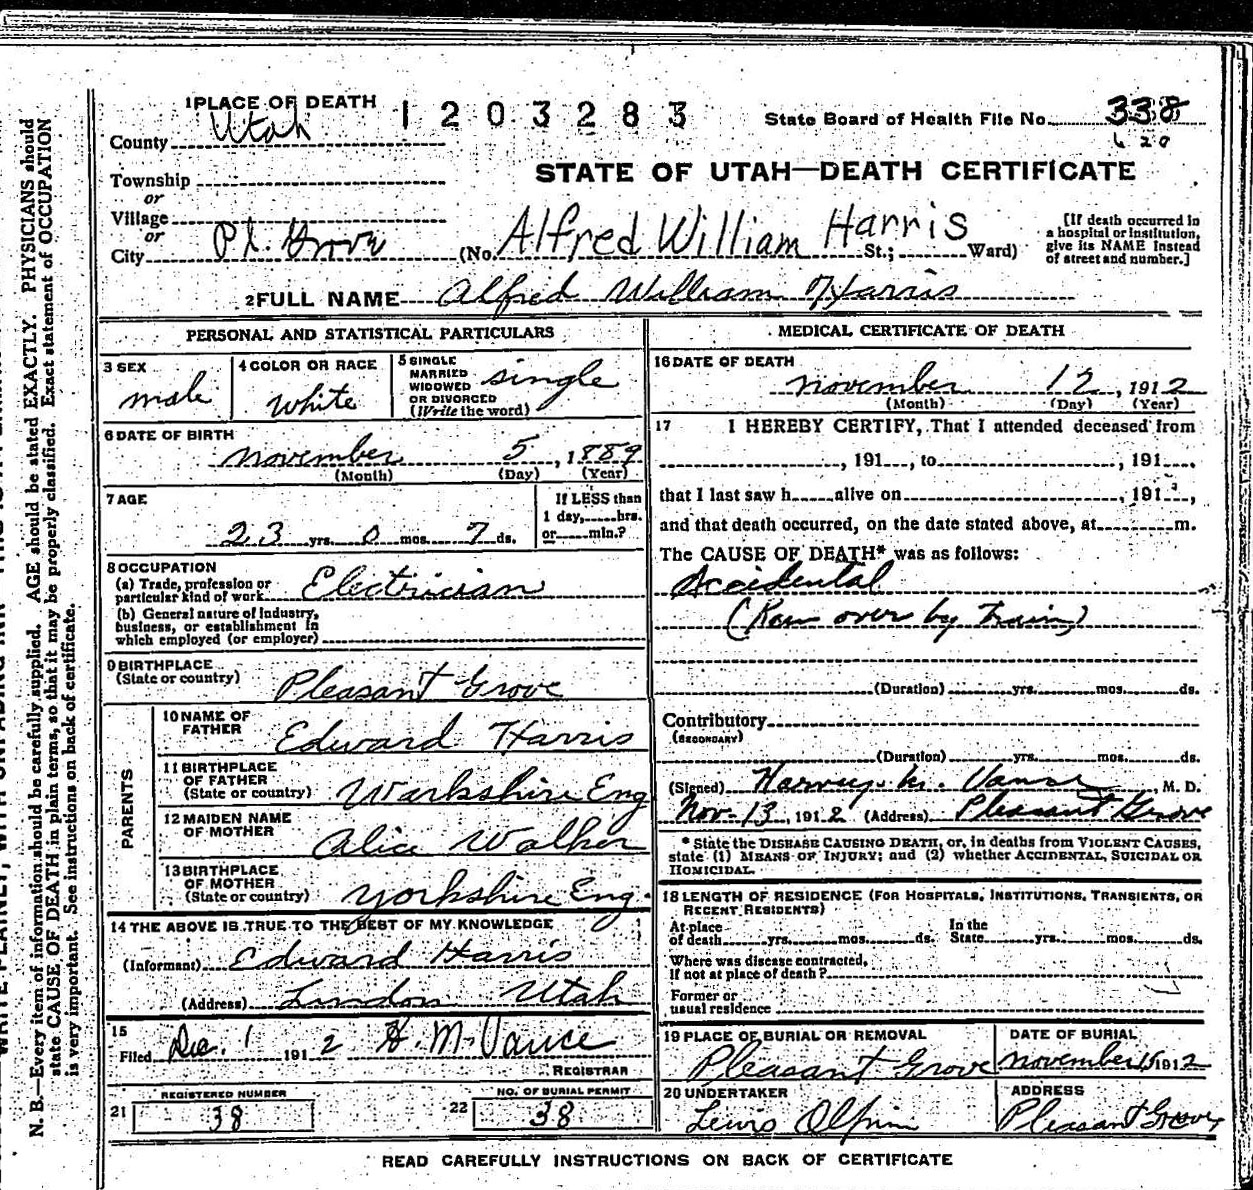 1 PLACE OF DEATH
1203283
State Board of Health File No. 338
620
County Utah
STATE OF UTAH—DEATH CERTIFICATE
Township
or
Village
or
City Pl. Grove (No. Alfred William Harris St.; Ward)
[If death occurred in a hospital or institution, give its NAME instead of street and number.]
2 FULL NAME Alfred William Harris
PERSONAL AND STATISTICAL PARTICULARS
3 SEX
male
4 COLOR OR RACE
White
5 SINGLE
MARRIED
WIDOWED
OR DIVORCED
(Write the word)
single
6 DATE OF BIRTH
November 5, 1889
(Month) (Day) (Year)
7 AGE
23 yrs. 0 mos. 7 ds.
If LESS than
1 day, hrs.
or min.?
8 OCCUPATION
(a) Trade, profession or
particular kind of work Electrician
(b) General nature of Industry,
business, or establishment in
which employed (or employer)
9 BIRTHPLACE
(State or country) Pleasant Grove
PARENTS
10 NAME OF
FATHER Edward Harris
11 BIRTHPLACE
OF FATHER
(State or country) Warkshire Eng
12 MAIDEN NAME
OF MOTHER Alice Walker
13 BIRTHPLACE
OF MOTHER
(State or country) Yorkshire Eng.
14 THE ABOVE IS TRUE TO THE BEST OF MY KNOWLEDGE
(Informant) Edward Harris
(Address) Lindon Utah
15
Filed Dec. 1 1912 H. M. Vance
REGISTRAR
REGISTERED NUMBER
21 38
NO. OF BURIAL PERMIT
22 38
MEDICAL CERTIFICATE OF DEATH
16 DATE OF DEATH
November 12, 1912
(Month) (Day) (Year)
17 I HEREBY CERTIFY, That I attended deceased from
, 191 , to , 191 ,
that I last saw h alive on , 191 ,
and that death occurred, on the date stated above, at m.
The CAUSE OF DEATH* was as follows:
Accidental
(Run over by Train)
(Duration) yrs. mos. ds.
Contributory
(SECONDARY)
(Duration) yrs. mos. ds.
(Signed) Harvey M. Vance, M. D.
Nov-13, 1912 (Address) Pleasant Grove
* State the DISEASE CAUSING DEATH, or, in deaths from VIOLENT CAUSES,
state (1) MEANS OF INJURY; and (2) whether ACCIDENTAL, SUICIDAL OR
HOMICIDAL.
18 LENGTH OF RESIDENCE (FOR HOSPITALS, INSTITUTIONS, TRANSIENTS, OR
RECENT RESIDENTS)
At place
of death yrs. mos. ds. In the
State yrs. mos. ds.
Where was disease contracted,
If not at place of death?
Former or
usual residence
19 PLACE OF BURIAL OR REMOVAL
Pleasant Grove
DATE OF BURIAL
November 15 1912
20 UNDERTAKER
Lewis Olpin
ADDRESS
Pleasant Grove
READ CAREFULLY INSTRUCTIONS ON BACK OF CERTIFICATE
N. B.—Every item of information should be carefully supplied. AGE should be stated EXACTLY. PHYSICIANS should
state CAUSE OF DEATH in plain terms, so that it may be properly classified. Exact statement of OCCUPATION
is very important. See instructions on back of certificate.